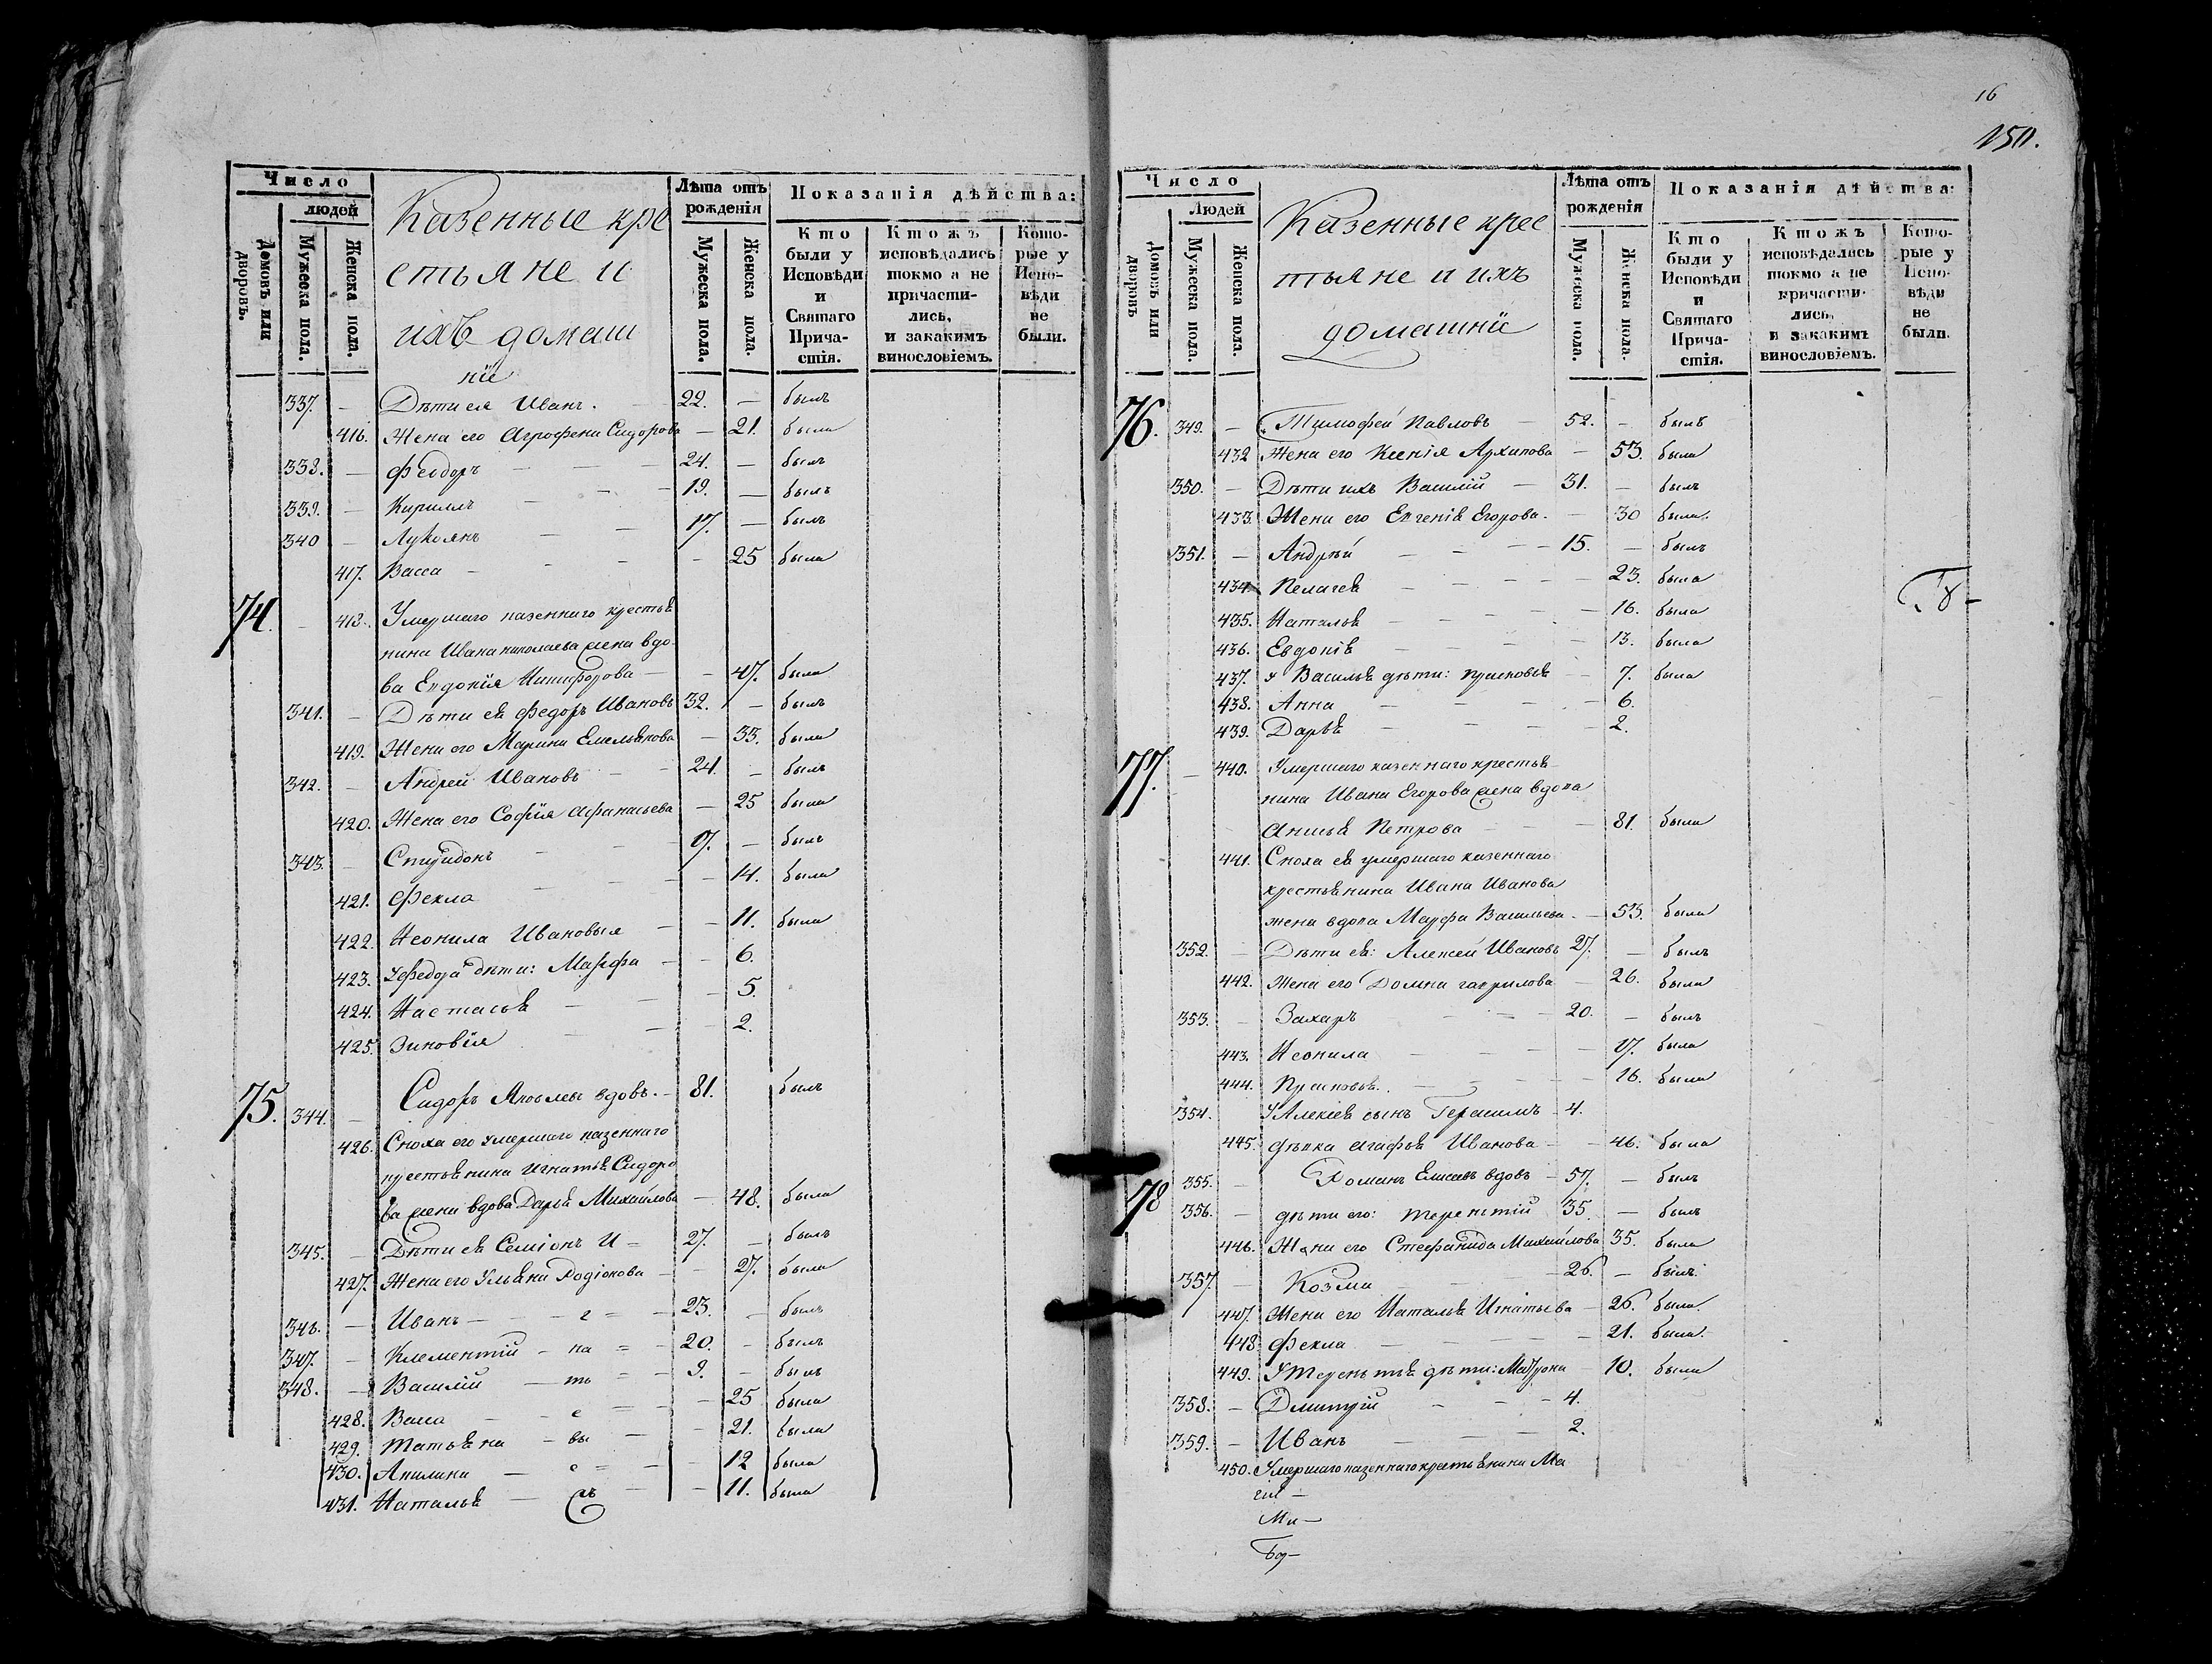 Число
людей
Домовъ или дворовъ.
Мужеска пола.
Женска пола.
Казенные кре
стьяне и
ихъ домаш
нiи
Лѣта отъ рожденія
Мужеска пола.
Женска пола.
Показанія дѣйства:
Кто были у Исповѣди и Святаго Прича-стія.
Ктожъ исповѣдались токмо а не причасти-лись, и закакимъ винословіемъ.
Кото-рые у Испо-вѣди не были.
337. — Дѣти ея Иванъ. 22. — былъ
416. Жена его Агрофена Сидорова — 21. была
338. — Феодоръ 24. — былъ
339. — Кирилъ 19. — былъ
340 — Лукоянъ 17. — былъ
417. Васса — 25 была
74. — 418. Умершаго казеннаго крестья
нина Ивана николаева жена вдо
ва Евдокія Никифорова — 47. была
341. — Дѣти ея Федоръ Ивановъ 32. — былъ
419. Жена его Марина Емельянова — 33. была
342. — Андрей Ивановъ 24. — былъ
420. Жена его Софія Афанасьева — 25 была
343. — Спиридонъ — былъ
421. Фекла — 14. была
422. Неонила Ивановыя — 11. была
423. У Федора дѣти: Марфа — 6.
424. Настасья — 5.
425. Зиновія — 2.
75. 344. — Сидоръ Яковлевъ вдовъ. — 81. былъ
426. Сноха его умершаго казеннаго
крестьянина Игнатья Сидоро
ва жена вдова Дарья Михайлова — 48. была
345. — Дѣти ея Семіонъ И = 27. — былъ
427. Жена его Ульяна Родіонова — 27. была
346. — Иванъ — г = 23. — былъ
347. — Клементій — на = 20. — былъ
348. — Василій — ть = 9. — былъ
428. Васса — е = 25 была
429. Татьяна — вы — 21. была
430. Акилина — е = 12 была
431. Наталья — 11. была
16
150.
Число
Людей
Домовъ или дворовъ
Мужеска пола.
Женска пола.
Казенные крес
тьяне и ихъ
домашніи
Лѣта отъ рожденія
Мужеска пола.
Женска пола.
Показанія дѣйства:
Кто были у Исповѣди и Святаго Прича-стія.
Ктожъ исповѣдались токмо а не причасти-лись, и закакимъ винословіемъ.
Кото-рые у Испо-вѣди не были.
76. 349. — Тимофей Павловъ — 52. — былъ
432 Жена его Ксенія Архипова — 53. была
350. — Дѣти ихъ Василій — 31. — былъ
433. Жена его Евгенія Егорова. — 30 была.
351. — Андрѣй — 15. — былъ
434. Пелагея — 23. была
435. Наталья — 16. была
436. Евдокія — 13. была
437. У Василья дѣти: Прасковья — 7. была
438. Анна — 6.
439. Дарья — 2.
77. — 440. Умершаго казеннаго крестья
нина Ивана Егорова жена вдова
Анисья Петрова — 81. была
441. Сноха ея умершаго казеннаго
крестьянина Ивана Иванова
жена вдова Марфа Васильева. — 53. была
352. — Дѣти ея: Алексей Ивановъ 27. — былъ
442. Жена его Домна гаврилова — 26. была
353. — Захаръ 20. — былъ
443. Неонила — 17. была
444. Прасковья. — 16. была
354. У Алексія сынъ Герасимъ — 4.
445. дѣвка Агафья Иванова — 46. была
78 355. — Романъ Елисеевъ вдовъ — 57. — былъ
356. — дѣти его: терентій 35. — былъ
446. Жена его Стефанида Михайлова 35. была
357. — Козма — 26. — былъ.
447. Жена его Наталья Игнатьева — 26. была.
448 Фекла — 21. была.
449. У Терентья дѣти: Матрона — 10. была
358. — Дмитрій — 4.
359. — Иванъ 2.
450. Умершаго казеннаго крестьянина Ма